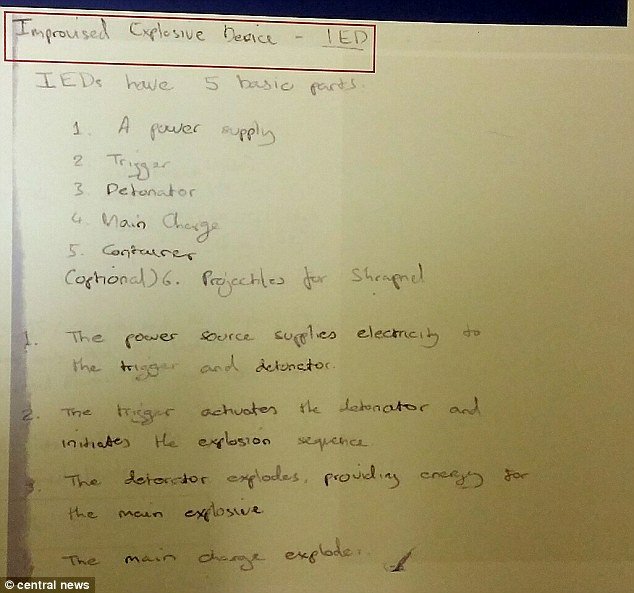 Improvised Explosive Device - IED
IEDs have 5 basic parts.
1. A power supply
2 Trigger
3 Detonator
4. Main Charge
5. Container
(optional) 6. Projectiles for Shrapnel
1. The power source supplies electricity to
the trigger and detonator.
2. The trigger actuates the detonator and
initiates the explosion sequence
3. The detonator explodes, providing energy for
the main explosive
The main charge explodes.
© central news